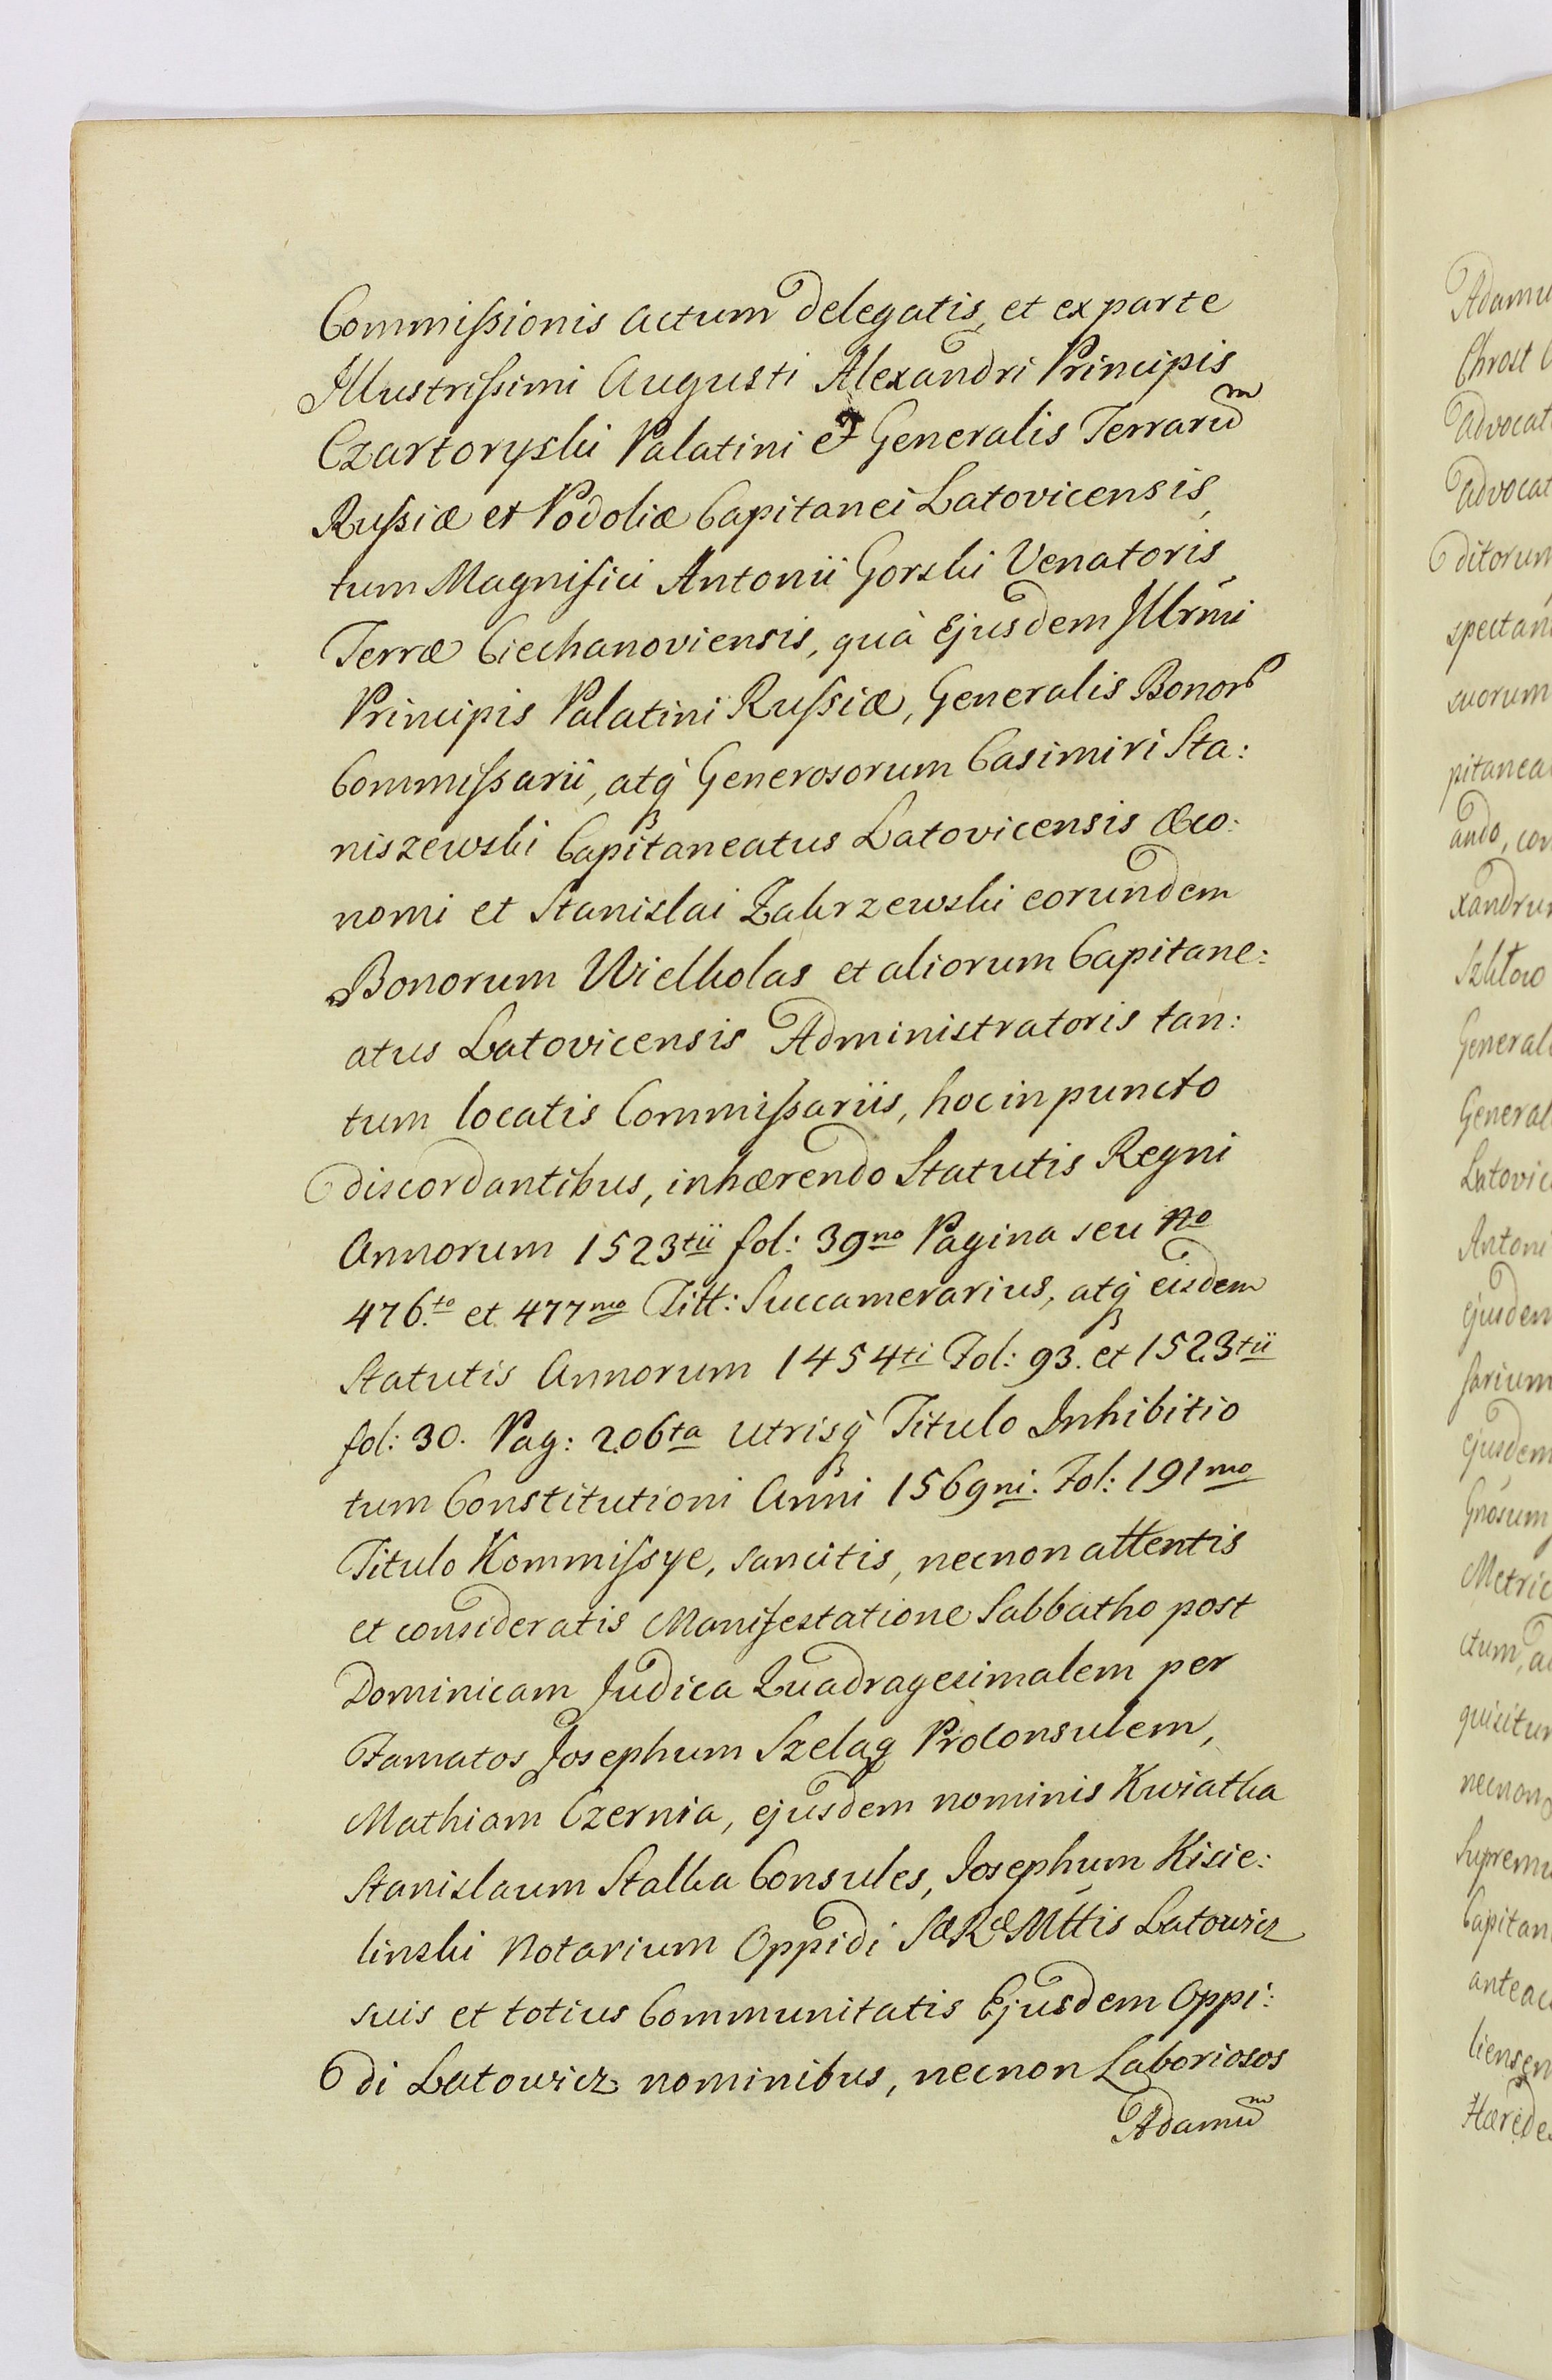 Commißionis Actum delegatis, et ex parte
Illustrißimi Augusti Alexandri Principis
Czartoryski Palatini et Generalis Terrarũm
Rußiæ et Podoliæ Capitanei Latovicensis,
tum Magnifici Antonii Gorski Venatoris
Terræ Ciechanoviensis, quà Ejusdem Illrmi
Principis Palatini Rußiæ, Generalis Bonor
Commißarii, atq Generosorum Casimiri Sta:
niszewski Capitaneatus Latovicensis Œco:
nomi et Stanislai Zakrzewski eorundem
Bonorum Wielkolas et aliorum Capitane:
atus Latovicensis Administratoris tan:
tum locatis Commißariis, hoc in puncto
discordantibus, inhærendo Statutis Regni
Annorum 1523tii fol: 39no Pagina seu No
476.to et 477mo Titt: Succamerarius, atq eisdem
Statutis Annorum 1454ti Fol: 93. et 1523tii
fol: 30. Pag: 206ta utrisq Titulo Inhibitio
tum Constitutioni Anni 1569ni. Fol: 191mo
Titulo Kommißye, sancitis, necnon attentis
et consideratis Manifestatione Sabbatho post
Dominicam Judica Quadragesimalem per
Famatos Josephum Szeląg Proconsulem,
Mathiam Czernia, ejusdem nominis Kwiatka
Stanislaum Stalka Consules, Josephum Kisie:
linski Notarium Oppidi SæRæMttis Latowicz
suis et totius Communitatis Ejusdem Oppi:
di Latowicz nominibus, necnon Laboriosos
Adamũm
Adamu
Chrost
Advocat
Advocat
ditorum
spectan
suorum
pitanea
ando, con
xandrum
General
General
Latovic
Antoni
ejusdem
sarium
ejusdem
Gnosum
Metric
ctum, a
quisitum
necnon
Supremi
Capitan
anteac
liensem
Hærede